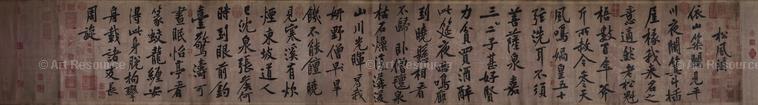 松風閣
依山築閣見平
川夜闌箕斗插
屋椽我來名之
意適然老松魁
梧數百年斧
斤所赦今參天
風鳴媧皇五十
弦洗耳不須
菩薩泉嘉
三二子甚好賢
力貧買酒醉
此筵夜雨鳴廊
到曉懸相看
不歸臥僧氈泉
枯石燥復潺湲
山川光輝為我
妍野僧早旱
饑不能饘曉
見寒溪有炊
煙東坡道人
已沈泉張侯何
時到眼前釣
臺驚濤可
晝眠怡亭看
篆蛟龍纏安
得此身脫拘攣
舟載諸友長
周旋